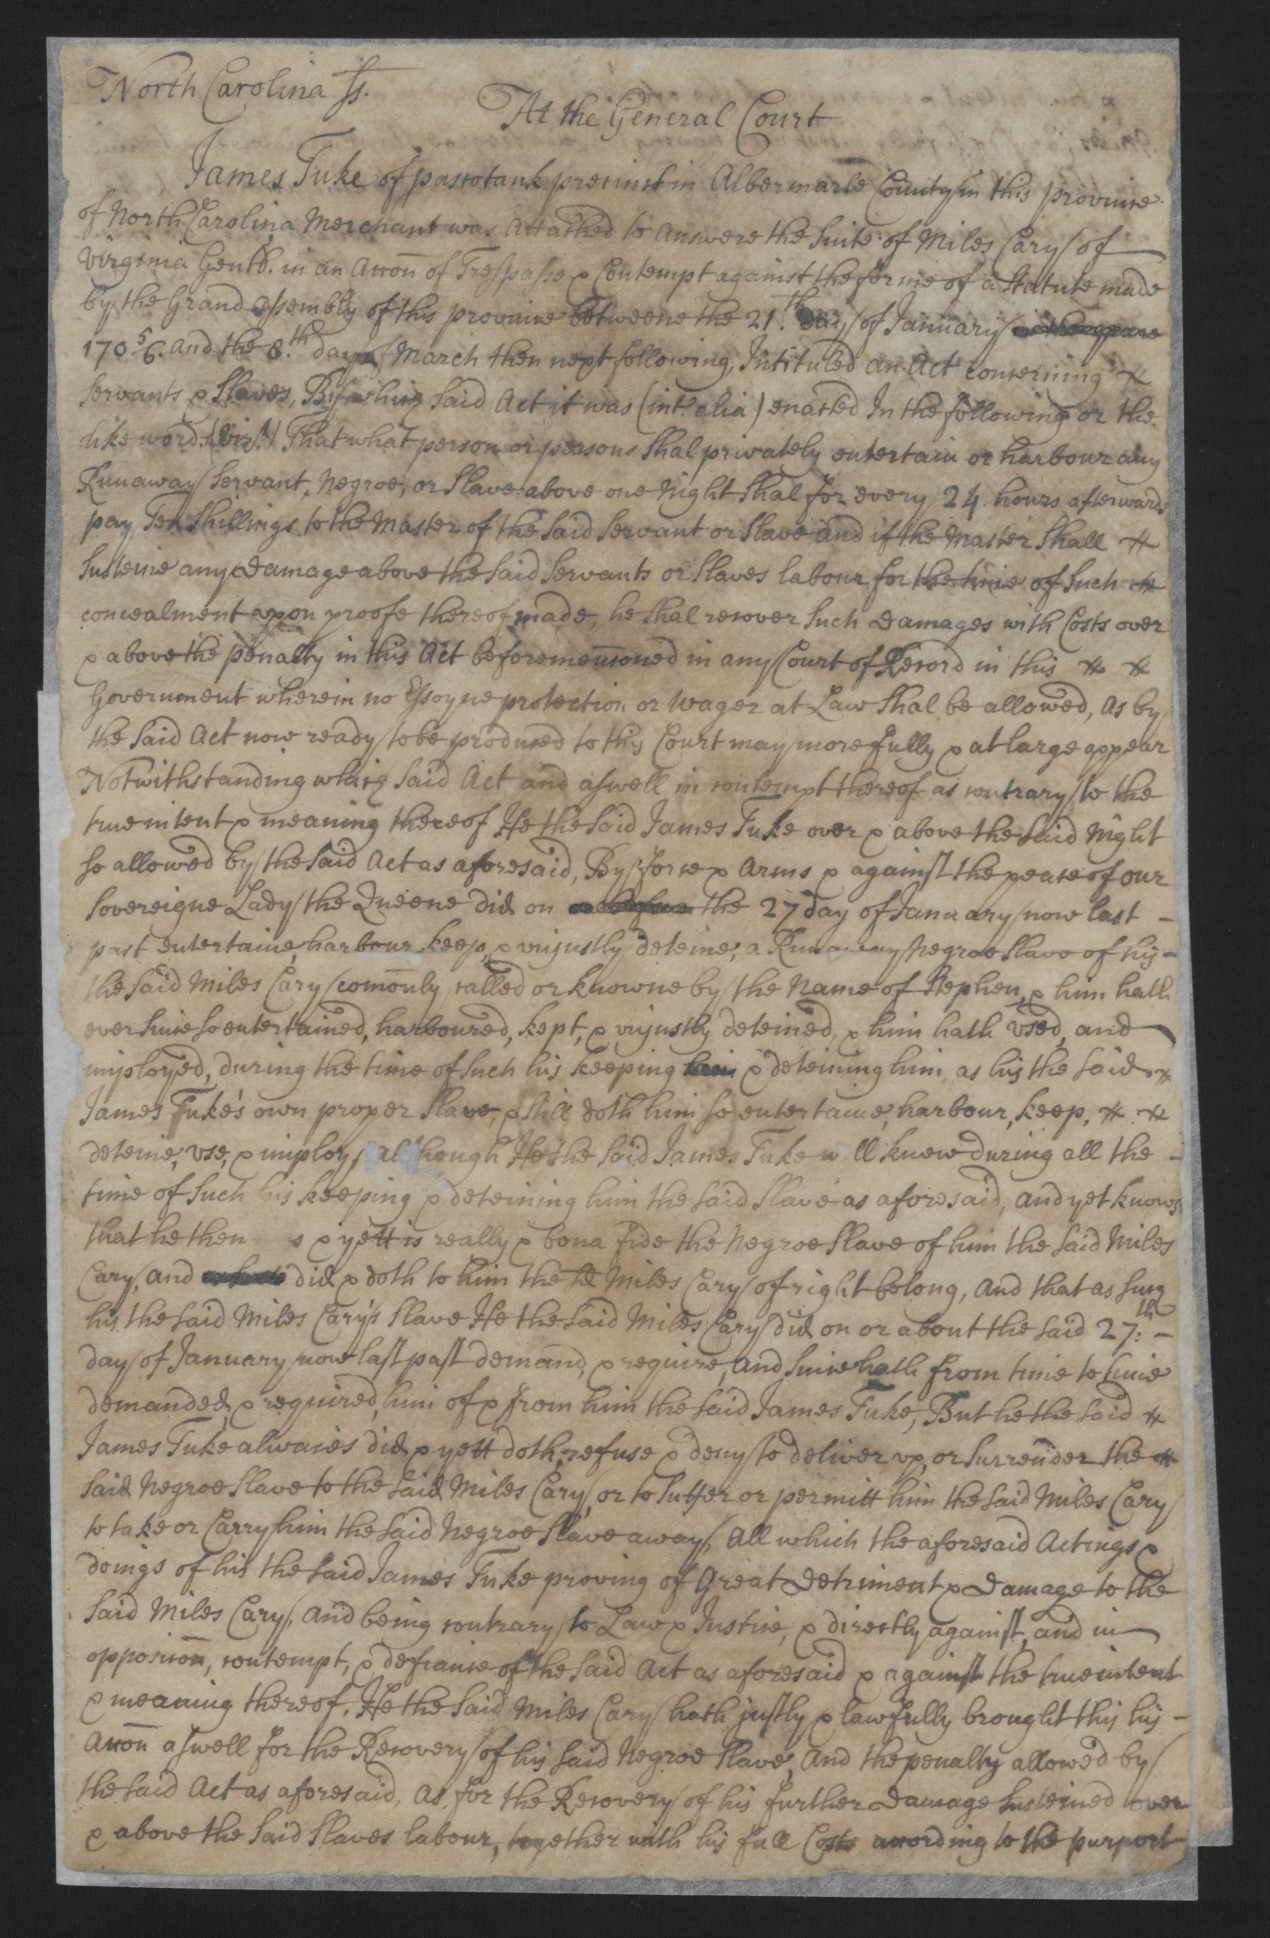 North Carolina Ss.
At the General Court
James Tuke of pascotank precinct in Albermarle County in this province
of North Carolina Merchant was Attached to answere the suite of Miles Cary of
Virginia Gentl. in an Accon̄ of Trespasse & Contempt against the forme of a Statute made
by the Grand Assembly of this province betweene the 21.th day of January
170 5/6. and the 8.th day of March then next following, Intituled an Act concerning
servants & slaves, By which said Act it was (int.r alia) enacted In the following or the
like words (viz.t) That what person or persons shal privately entertain or harbour any
Runaway servant, Negroe, or slave above one Night shal for every 24 hours afterwards
pay Ten shillings to the Master of the said servant or slave And if the Master shall
susteine any Damage above the said servants or slaves labour for the time of such
concealment upon proofe thereof made, he shal recover such Damages with Costs over
& above the penalty in this Act beforemen̄coned in any Court of Record in this
Government wherein no Essoyne protection or Wager at Law shal be allowed, As by
the said Act now ready to be produced to this Court may more fully & at large appear
Notwithstanding which said Act and aswell in contempt thereof as contrary to the
true intent & meaning thereof He the said James Tuke over & above the said Night
so allowed by the said Act as aforesaid, By force & Arms & against the peace of our
sovereigne Lady the Queene did on the 27 day of January now last
past entertaine, harbour keep, & unjustly deteine, a Runaway Negroe slave of his
the said Miles Cary com̄only called or knowne by the Name of Stephen, & him hath
ever since so entertained, harboured, kept, & unjustly deteined, & him hath Used, and
imployed, during the time of such his keeping & deteining him as his the said
James Tuke's own proper slave, & still doth him so entertaine, harbour, keep,
deteine, use, & imploy, although He the said James Tuke w ll knew during all the
time of such his keeping & deteining him the said slave as aforesaid, and yet knows
that he then s & yett is really & bona fide the Negroe slave of him the said Miles
Cary, and did & doth to him the sd Miles Cary of right belong, And that as such
his the said Miles Cary's slave He the said Miles Cary did on or about the said 27:th
day of January now last past demand, & require, and since hath from time to time
demanded, & required, him of & from him the said James Tuke, But he the said
James Tuke alwaies did & yett doth refuse & deny to deliver up, or surrender the
said Negroe slave to the said Miles Cary, or to suffer or permitt him the said Miles Cary
to take or Carry him the said Negroe slave away, All which the aforesaid Actings &
doings of his the said James Tuke proving of Great Detriment & Damage to the
said Miles Cary, and being contrary to Law & Justice, & directly against, and in
opposicon̄, contempt, & defiance of the said Act as aforesaid & against the true intent
& meaning thereof. He the said Miles Cary hath justly & lawfully brought this his
Accon̄ aswell for the Recovery of his said Negroe slave, and the penalty allowed by
the said Act as aforesaid, As for the Recovery of his further Damage susteined over
& above the said slaves labour, together with his full Costs according to the purport